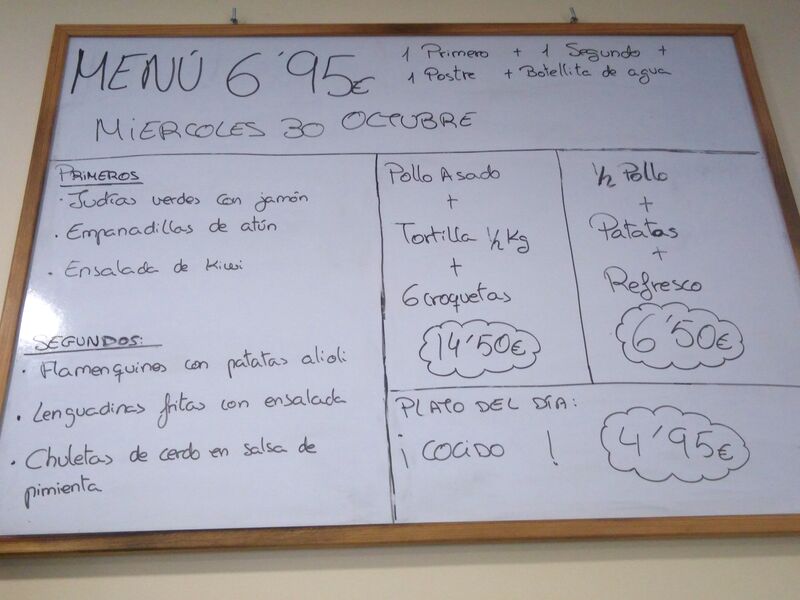 MENÚ 6'95€
1 Primero + 1 Segundo +
1 Postre + Botellita de agua
MIERCOLES 30 OCTUBRE
PRIMEROS
· Judías verdes con jamón
· Empanadillas de atún
· Ensalada de Kiwi
SEGUNDOS:
· Flamenquines con patatas alioli
· Lenguadinas fritas con ensalada
· Chuletas de cerdo en salsa de
pimienta
Pollo Asado
+
Tortilla 1/2 Kg
+
6 croquetas
14'50€
1/2 Pollo
+
Patatas
+
Refresco
6'50€
PLATO DEL DÍA:
¡ COCIDO !
4'95€